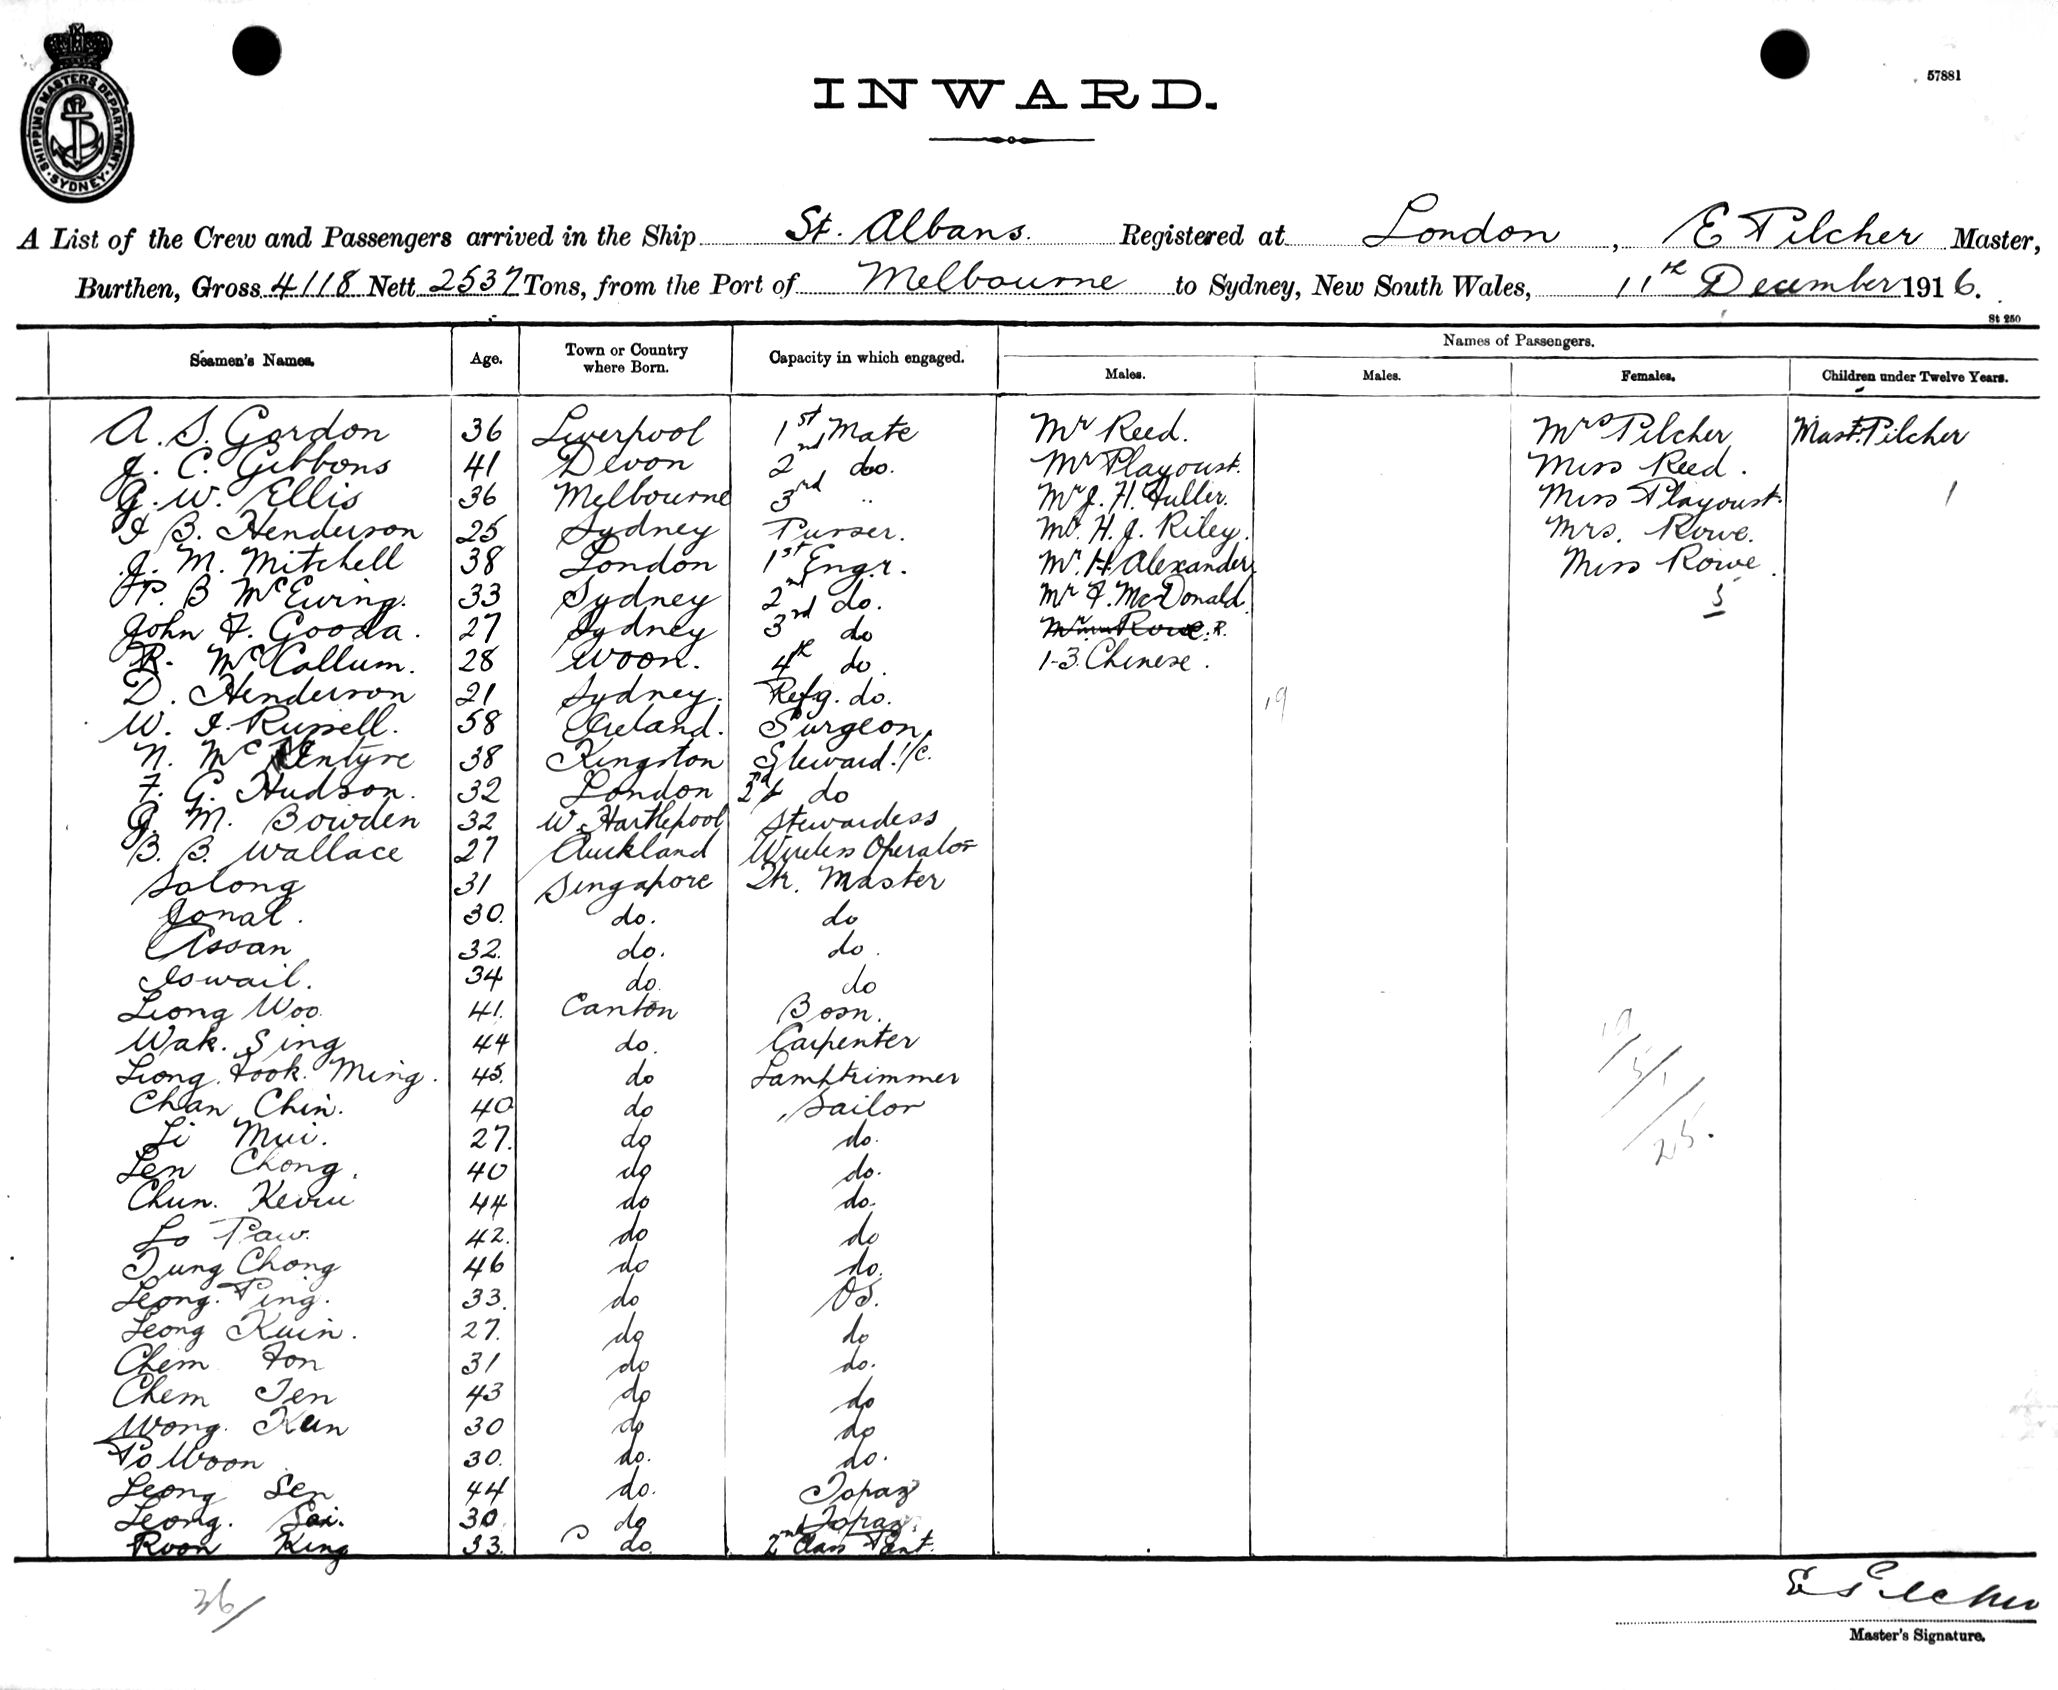 SHIPPING MASTERS DEPARTMENT · SYDNEY ·
57881
INWARD.
A List of the Crew and Passengers arrived in the Ship St. Albans. Registered at London, E Pilcher Master,
Burthen, Gross 4118 Nett 2537 Tons, from the Port of Melbourne to Sydney, New South Wales, 11th December 1916.
St 250
Seamen's Names. Age. Town or Country where Born. Capacity in which engaged. Names of Passengers.
Males. Males. Females. Children under Twelve Years.
A. S. Gordon 36 Liverpool 1st Mate Mr Reed. Mrs Pilcher Mast. Pilcher
J. C. Gibbons 41 Devon 2nd do. Mr Playoust. Miss Reed.
G. W. Ellis 36 Melbourne 3rd " Mr J. H. Fuller. Miss Playoust. 1
B. Henderson 25 Sydney Purser. Mr. H. J. Riley. Mrs. Rowe.
J. M. Mitchell 38 London 1st Engr. Mr. H. Alexander. Miss Rowe.
P. B McEwing. 33 Sydney 2nd do. Mr F. McDonald. 5
John F. Gooda. 27 Sydney 3rd do Rowe. R.
R. McCallum. 28 Woon. 4th do. 1-3. Chinese.
D. Henderson 21 Sydney. Refg. do. 19
W. I. Russell. 58 Ireland. Surgeon.
N. McEntyre 38 Kingston Steward. I/c.
F. G. Hudson. 32 London 2nd do
G. M. Bowden 32 W. Hartlepool Stewardess
B. B. Wallace 27 Auckland Wireless Operator
Salong 31 Singapore Qr. Master
Jonal. 30. do. do
Assan 32. do. do.
Iswail. 34 do. do
Leong Woo 41. Canton Bosn.
Wak. Sing 44 do. Carpenter
Leong. Fook. Ming. 45. do Lamptrimmer
Chan Chin. 40 do Sailor
Li Mui. 27. do do.
Len Chong. 40 do do.
Chun. 44 do do.
Lo Paw. 42. do do
Tung Chong 46 do do.
Leong. Ping. 33. do OS.
Leong Kuin. 27. do do
Chem Fon 31 do do.
Chem Ten 43 do do
Wong. Kun 30 do do
Po Woon 30. do. do.
Leong Sen 44 do. Topaz
Leong. Soi. 30. do Topaz.
Koon King 33. do. 2nd Class Pant.
19/5/1/25.
36/
E Pilcher
Master's Signature.